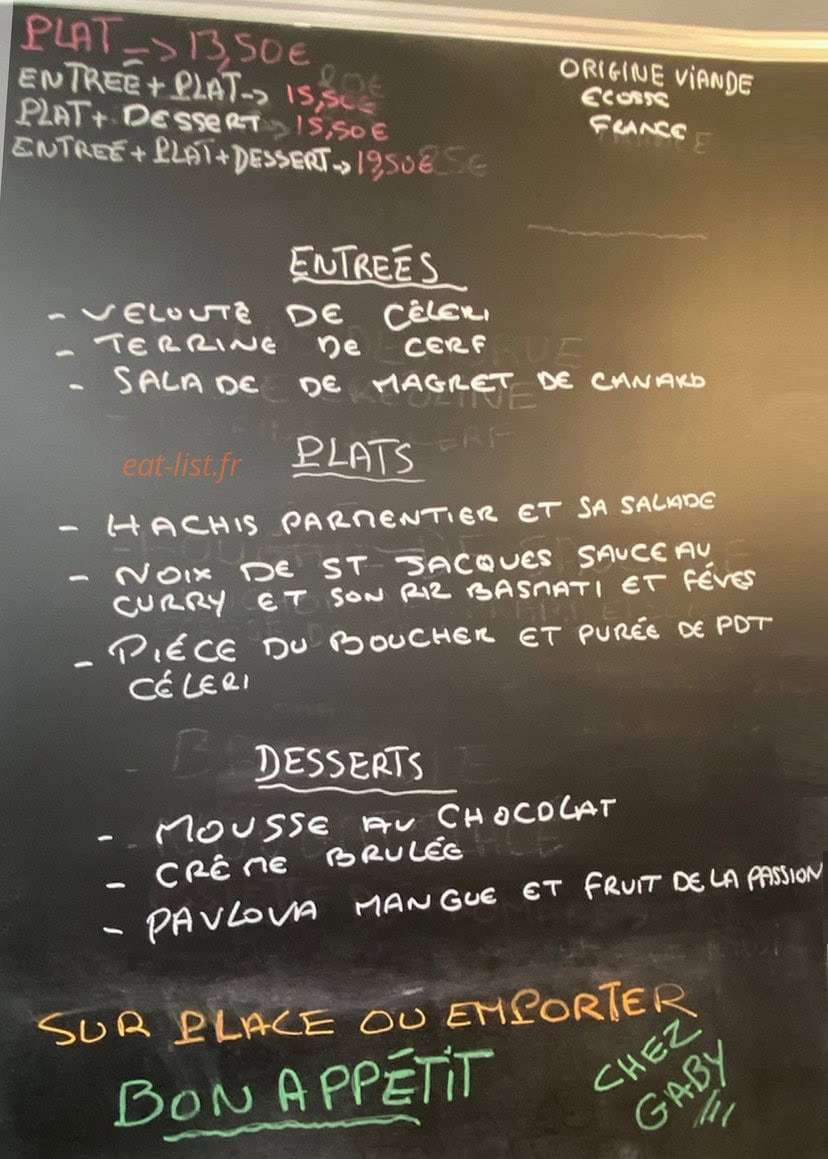 PLAT -> 13,50€
ENTREÉ + PLAT -> 15,50€
PLAT + DESSERT -> 15,50€
ENTREÉ + PLAT + DESSERT -> 19,50€
ORIGINE VIANDE
ECOSSE
FRANCE
ENTREÉS
- VELOUTÉ DE CÈLERI
- TERRINE DE CERF
- SALADE DE MAGRET DE CANARD
eat-list.fr
PLATS
- HACHIS PARMENTIER ET SA SALADE
- NOIX DE ST JACQUES SAUCE AU
CURRY ET SON RIZ BASMATI ET FÉVES
- PIÉCE DU BOUCHER ET PURÉE DE PDT
CÉLERI
DESSERTS
- MOUSSE AU CHOCOLAT
- CRÊME BRULÉE
- PAVLOVA MANGUE ET FRUIT DE LA PASSION
SUR PLACE OU EMPORTER
BON APPÉTIT
CHEZ
GABY !!!